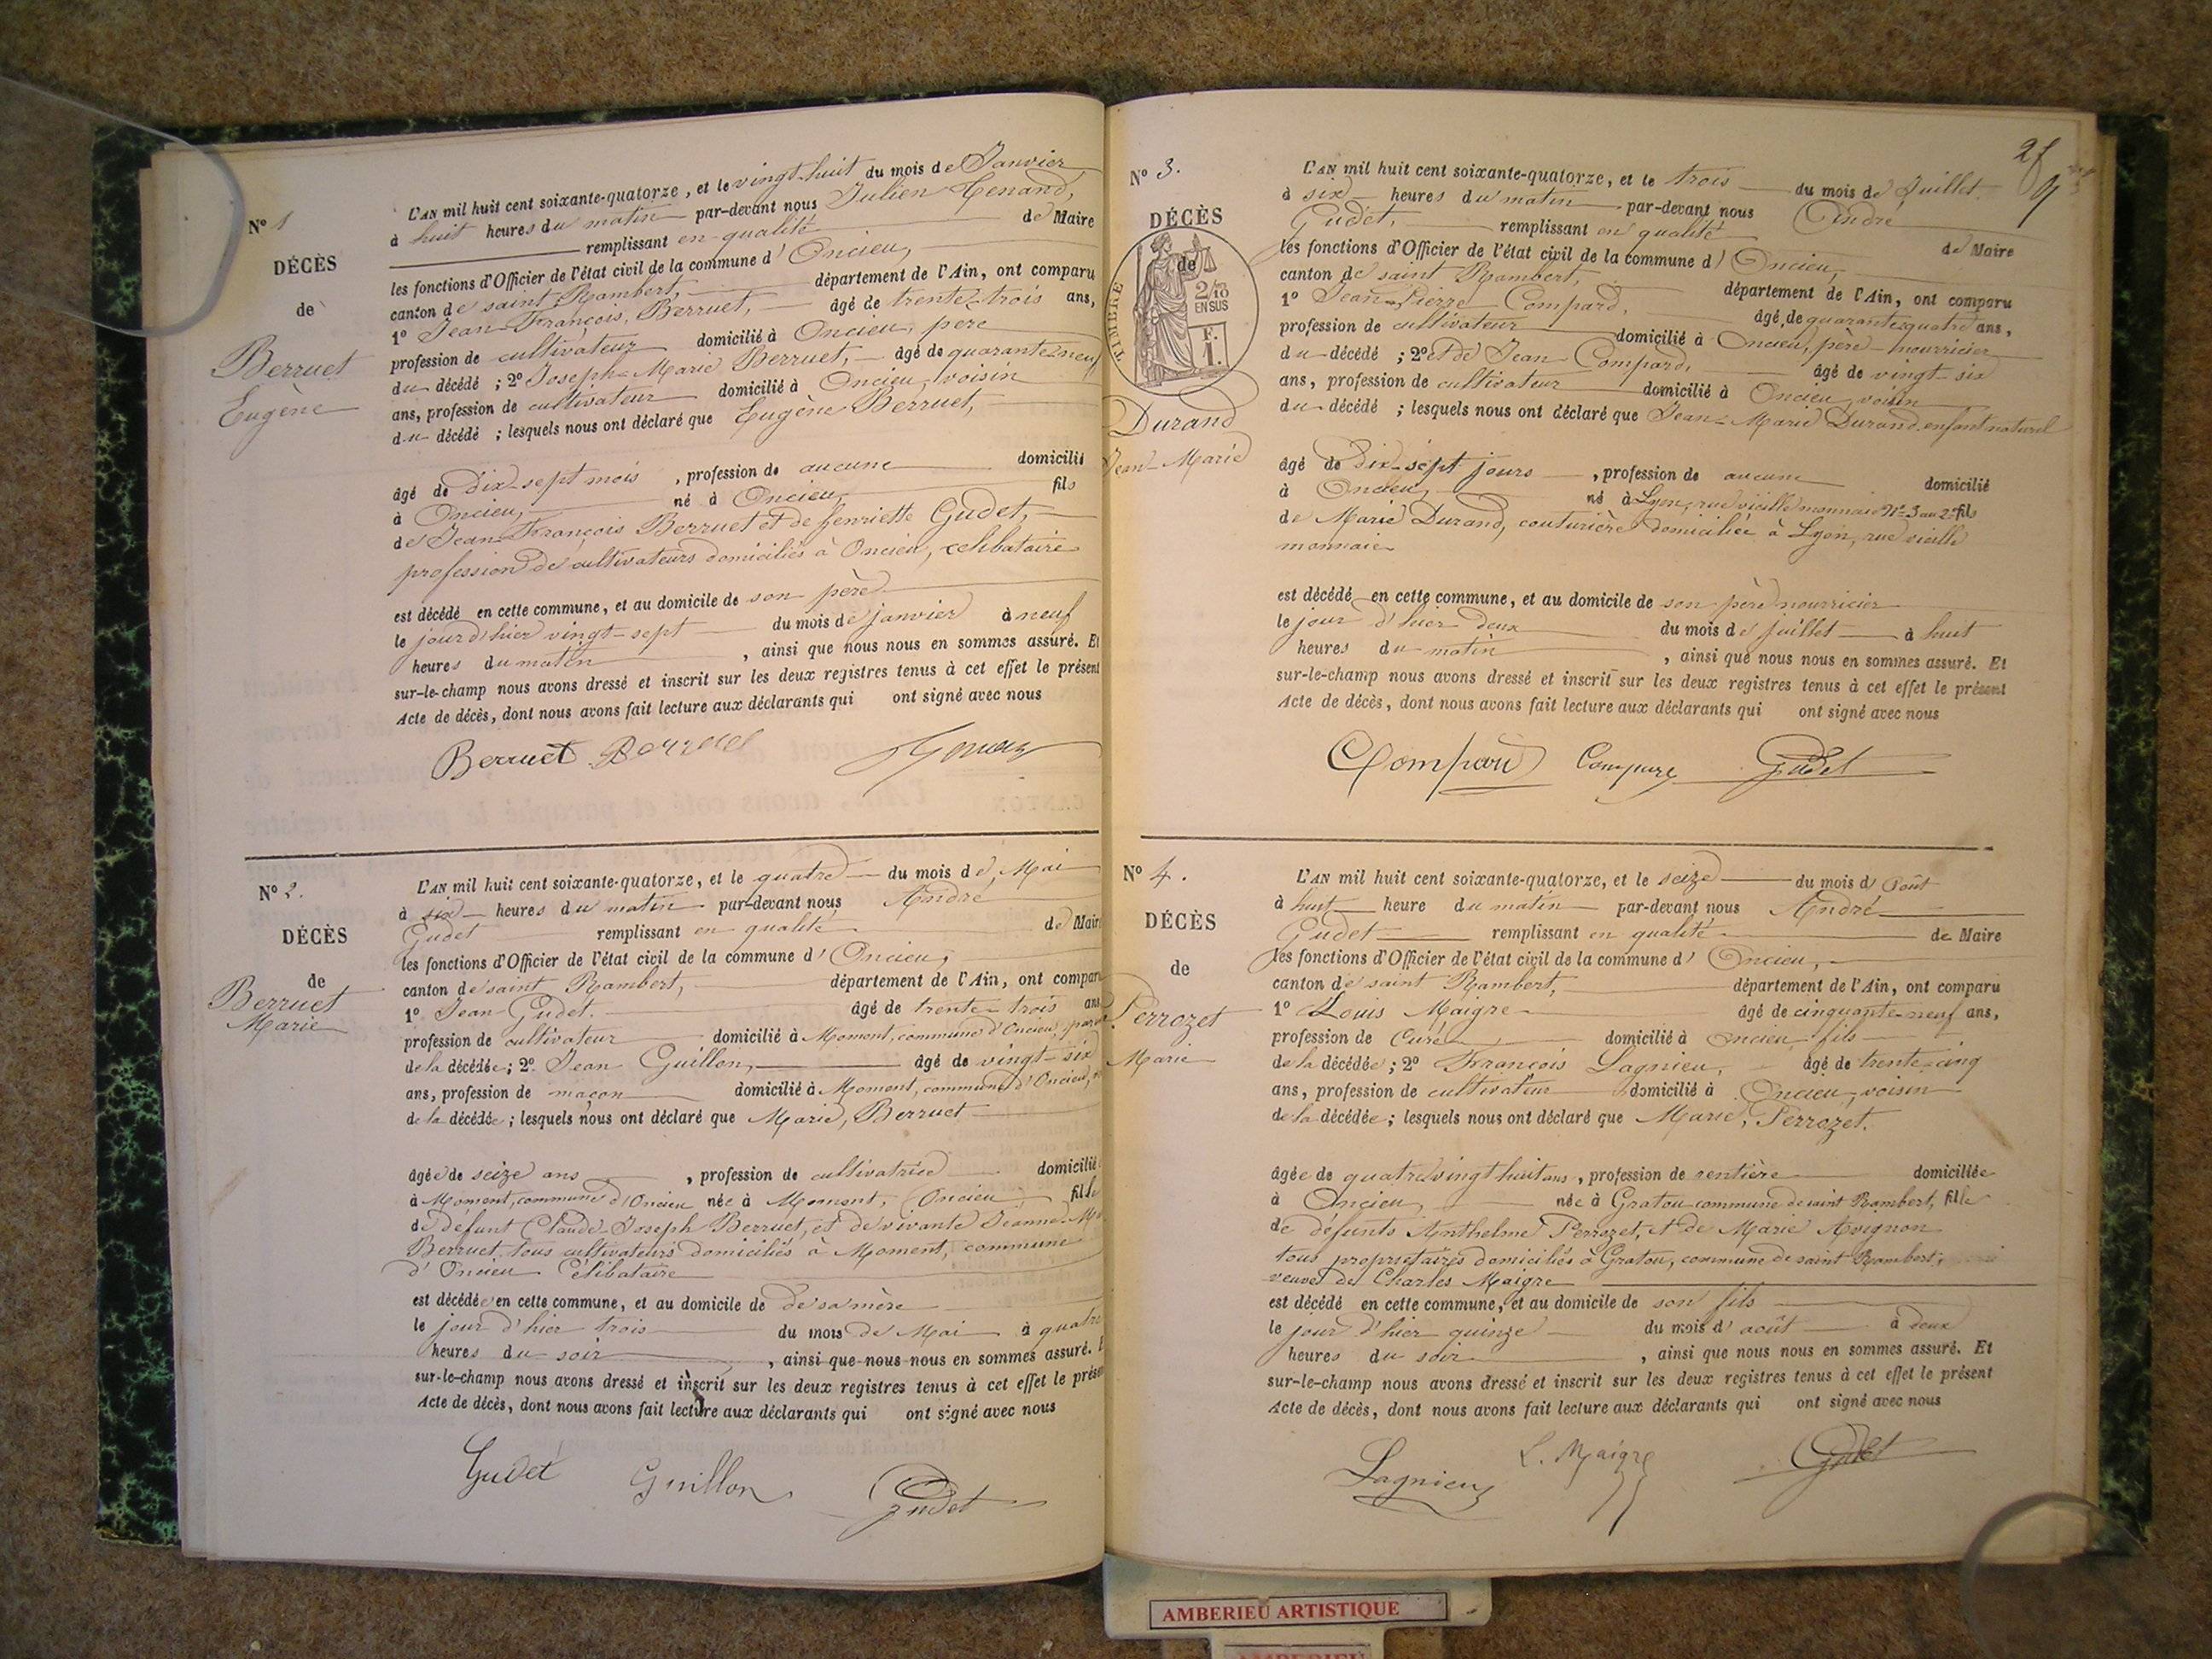 N° 1
DÉCÈS
de
Berruet
Eugène
L'AN mil huit cent soixante-quatorze, et le vingt-huit du mois de Janvier
à huit heures du matin par-devant nous Julien Tenand,
remplissant en qualité de Maire
les fonctions d'Officier de l'état civil de la commune d'Oncieu,
canton de saint Rambert, département de l'Ain, ont comparu
1° Jean-François, Berruet, âgé de trente-trois ans,
profession de cultivateur domicilié à Oncieu, père
du décédé ; 2° Joseph-Marie Berruet, âgé de quarante-neuf
ans, profession de cultivateur domicilié à Oncieu, voisin
du décédé ; lesquels nous ont déclaré que Eugène Berruet,
âgé de dix-sept mois, profession de aucune domicilié
à Oncieu, né à Oncieu, fils
de Jean-François Berruet et de henriette Gudet,
profession de cultivateurs domiciliés à Oncieu, celibataire
est décédé en cette commune, et au domicile de son père
le jour d'hier vingt-sept du mois de janvier à neuf
heures du matin, ainsi que nous nous en sommes assuré. Et
sur-le-champ nous avons dressé et inscrit sur les deux registres tenus à cet effet le présent
Acte de décès, dont nous avons fait lecture aux déclarants qui ont signé avec nous
Berruet Berruet
N° 2.
DÉCÈS
de
Berruet
Marie
L'AN mil huit cent soixante-quatorze, et le quatre du mois de Mai
à six heures du matin par-devant nous André
Gudet remplissant en qualité de Maire
les fonctions d'Officier de l'état civil de la commune d'Oncieu,
canton de saint Rambert, département de l'Ain, ont comparu
1° Jean Gudet. âgé de trente-trois ans
profession de cultivateur domicilié à Moment, commune d'Oncieu,
de la décédée ; 2° Jean Guillon, âgé de vingt-six
ans, profession de maçon domicilié à Moment, commune d'Oncieu,
de la décédée ; lesquels nous ont déclaré que Marie, Berruet
âgée de seize ans, profession de cultivatrice domicilié
à Moment, commune d'Oncieu née à Moment, Oncieu, fille
de défunt Claude-Joseph Berruet, et de vivante Jeanne-
Berruet, tous cultivateurs domiciliés à Moment, commune
d'Oncieu Célibataire
est décédée en cette commune, et au domicile de de sa mère
le jour d'hier trois du mois de Mai à quatre
heures du soir, ainsi que nous nous en sommes assuré.
sur-le-champ nous avons dressé et inscrit sur les deux registres tenus à cet effet le présent
Acte de décès, dont nous avons fait lecture aux déclarants qui ont signé avec nous
Gudet Guillon Gudet
N° 3.
DÉCÈS
de
TIMBRE
2/10
EN SUS
F.
1.
Durand
Jean-Marie
L'AN mil huit cent soixante-quatorze, et le trois du mois de Juillet
à six heures du matin par-devant nous André
Gudet, remplissant en qualité de Maire
les fonctions d'Officier de l'état civil de la commune d'Oncieu
canton de saint Rambert, département de l'Ain, ont comparu
1° Jean-Pierre Compard, âgé de quarante-quatre ans,
profession de cultivateur domicilié à Oncieu, père-nourricier
du décédé ; 2° et de Jean Compard, âgé de vingt-six
ans, profession de cultivateur domicilié à Oncieu, voisin
du décédé ; lesquels nous ont déclaré que Jean-Marie Durand enfant naturel
âgé de dix-sept jours, profession de aucune domicilié
à Oncieu, né à Lyon, rue vieille monnaie N° 3 au 2e fils
de Marie Durand, couturière domiciliée à Lyon, rue vieille
monnaie
est décédé en cette commune, et au domicile de son père nourricier
le jour d'hier deux du mois de juillet à huit
heures du matin, ainsi que nous nous en sommes assuré. Et
sur-le-champ nous avons dressé et inscrit sur les deux registres tenus à cet effet le présent
Acte de décès, dont nous avons fait lecture aux déclarants qui ont signé avec nous
Compard Gudet
N° 4.
DÉCÈS
de
Perrozet
Marie
L'AN mil huit cent soixante-quatorze, et le seize du mois d'Août
à huit heure du matin par-devant nous André
Gudet remplissant en qualité de Maire
les fonctions d'Officier de l'état civil de la commune d'Oncieu,
canton de saint Rambert, département de l'Ain, ont comparu
1° Louis Maigre âgé de cinquante-neuf ans,
profession de Curé domicilié à Oncieu, fils
de la décédée ; 2° François Lagnieu, âgé de trente-cinq
ans, profession de cultivateur domicilié à Oncieu, voisin
de la décédée ; lesquels nous ont déclaré que Marie, Perrozet.
âgée de quatre vingt huit ans, profession de rentière domiciliée
à Oncieu, née à Gratou commune de saint Rambert, fille
de défunts Anthelme Perrozet, et de Marie Avignon
tous propriétaires domiciliés à Gratou, commune de saint Rambert,
veuve de Charles Maigre
est décédé en cette commune, et au domicile de son fils
le jour d'hier quinze du mois d'août à deux
heures du soir, ainsi que nous nous en sommes assuré. Et
sur-le-champ nous avons dressé et inscrit sur les deux registres tenus à cet effet le présent
Acte de décès, dont nous avons fait lecture aux déclarants qui ont signé avec nous
Lagnieu L. Maigre Gudet
AMBERIEU ARTISTIQUE
AMBERIEU